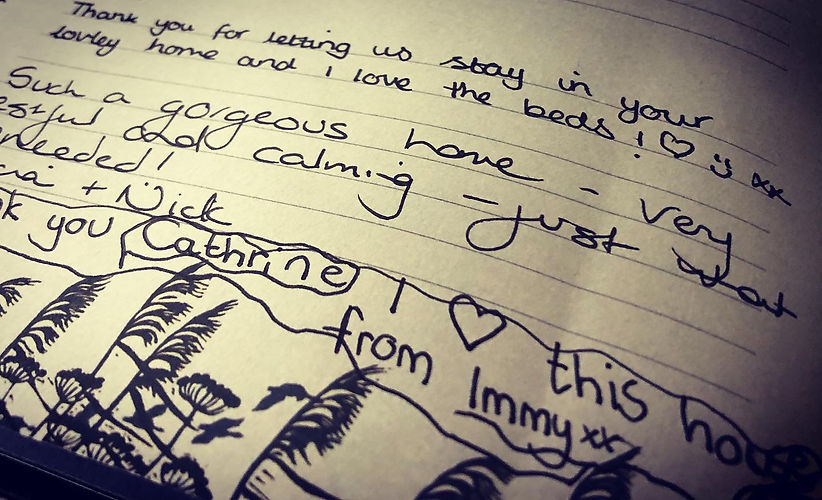 Thank you for letting us stay in your
lovley home and I love the beds! ♡ xx
Such a gorgeous home - very
and calming - just what
needed!
+ Nick
you Cathrine I ♡ this house
from Immy xx